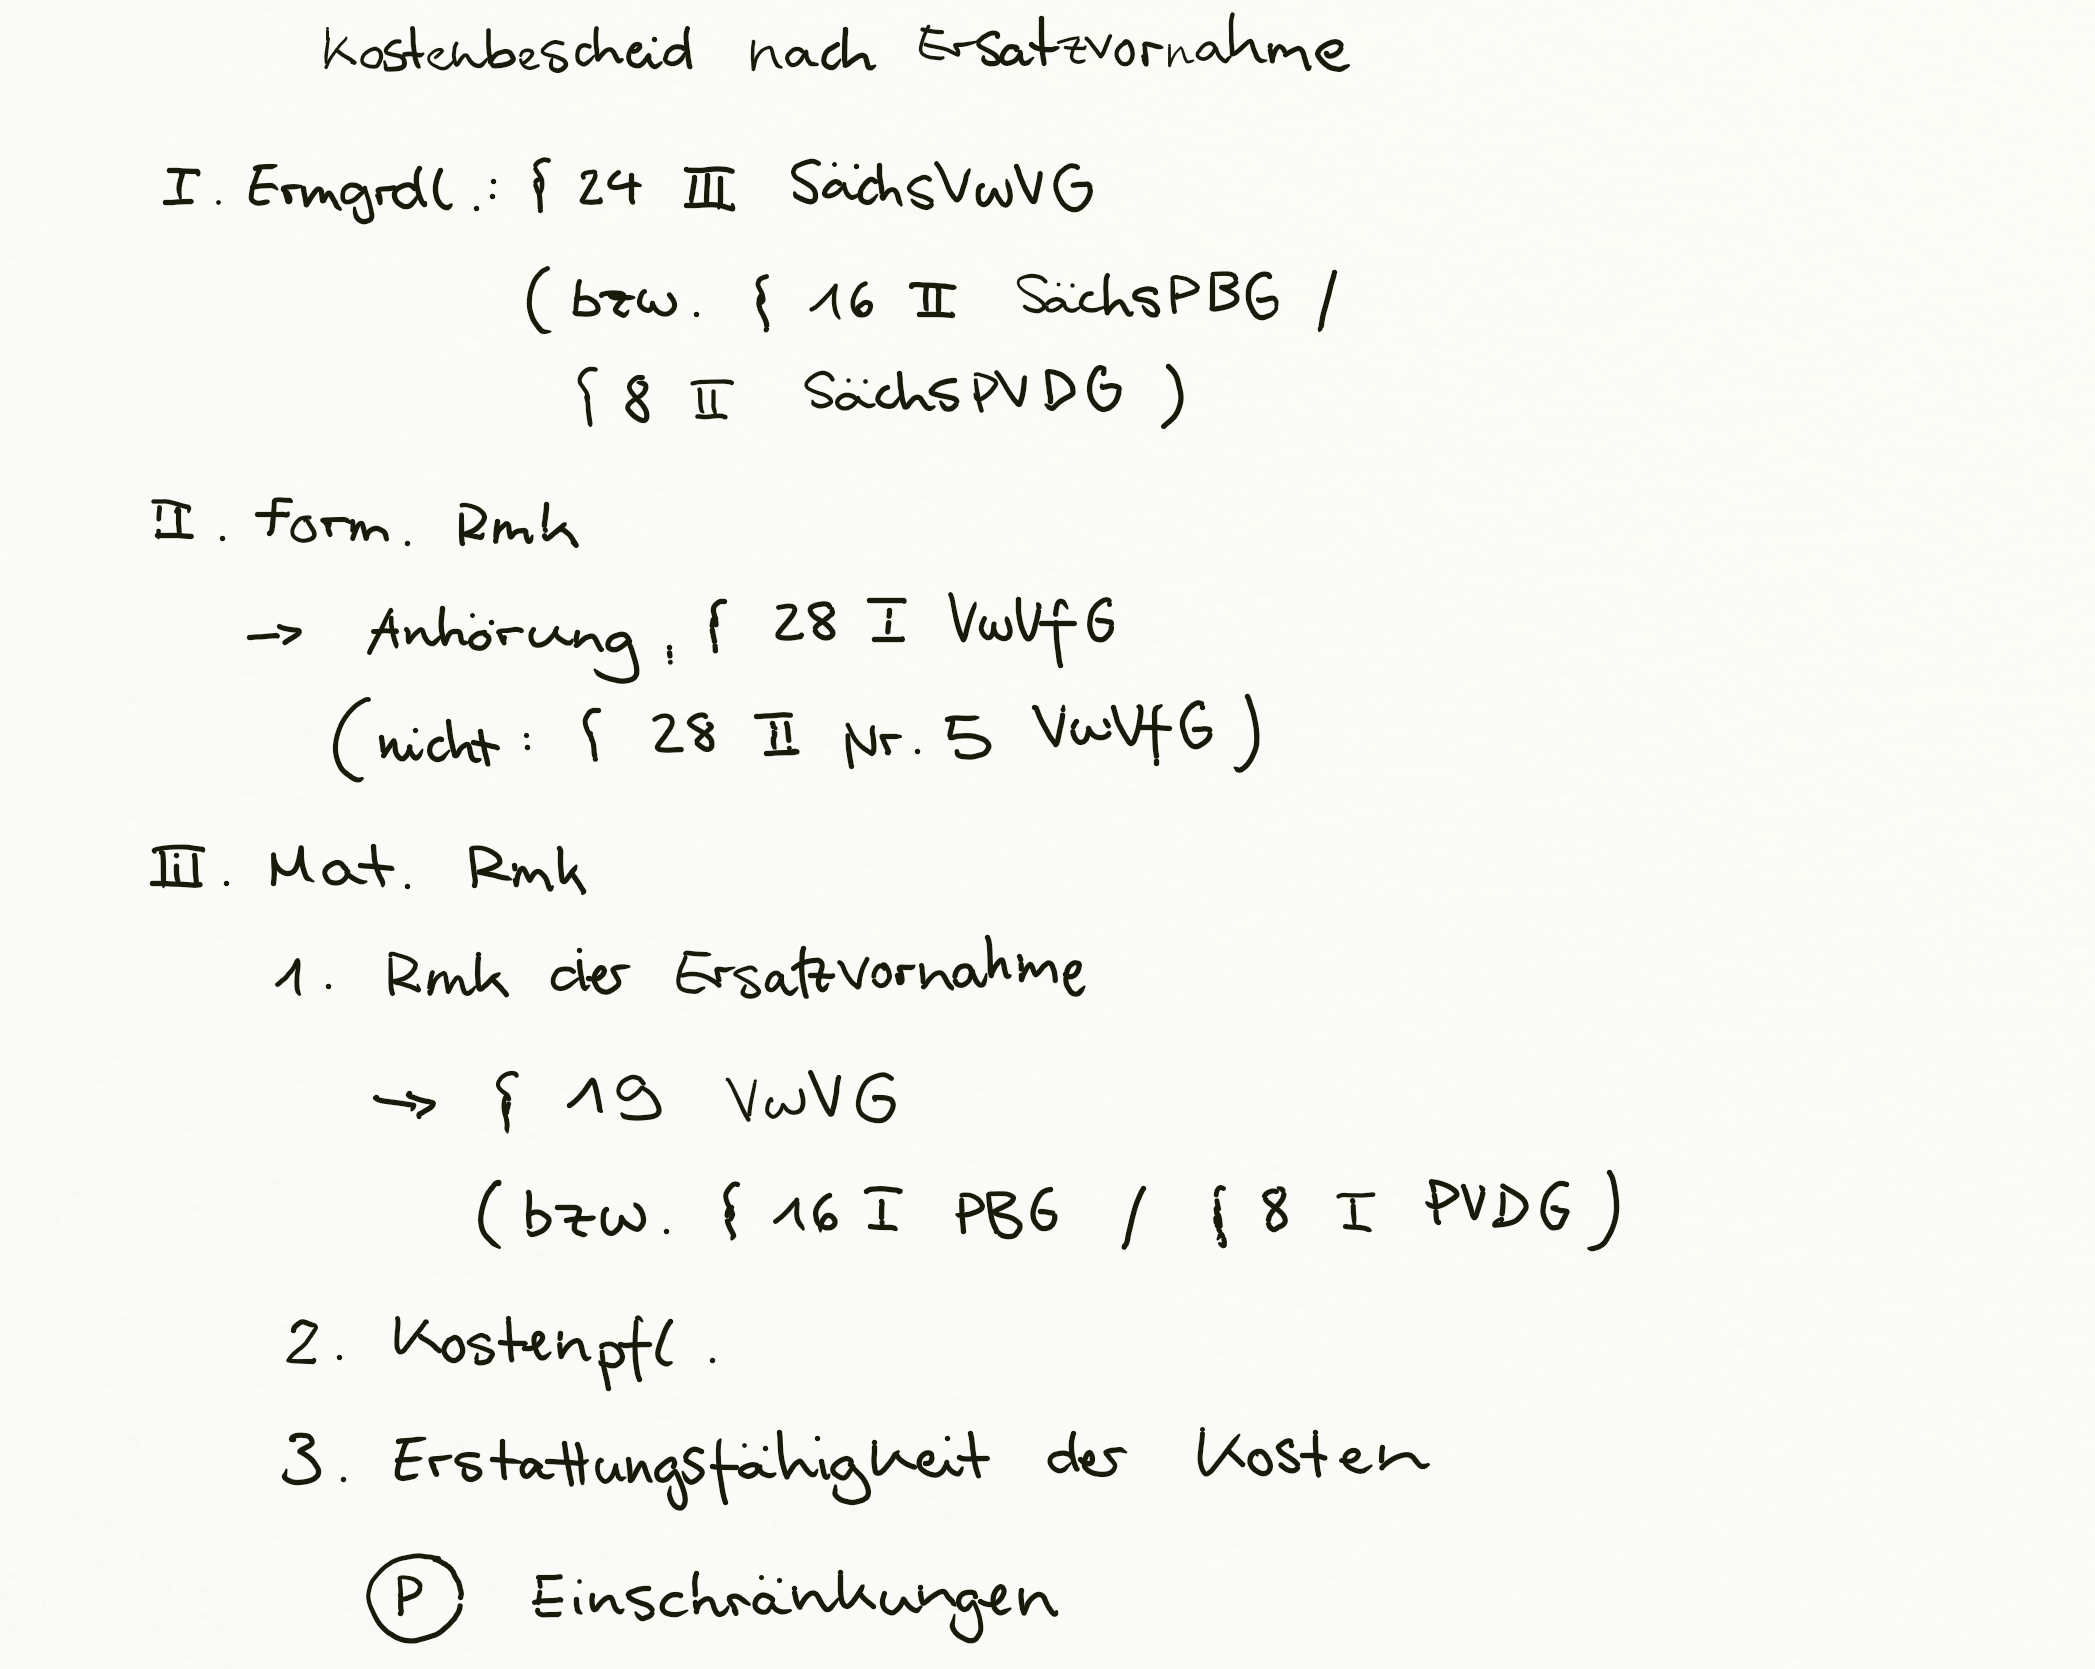 Kostenbescheid nach Ersatzvornahme
I. Ermgrdl.: § 24 III SächsVwVG
(bzw. § 16 II SächsPBG /
§ 8 II SächsPVDG)
II. Form. Rmk
→ Anhörung: § 28 I VwVfG
(nicht: § 28 II Nr. 5 VwVfG)
III. Mat. Rmk
1. Rmk der Ersatzvornahme
→ § 19 VwVG
(bzw. § 16 I PBG / § 8 I PVDG)
2. Kostenpfl.
3. Erstattungsfähigkeit der Kosten
P Einschränkungen